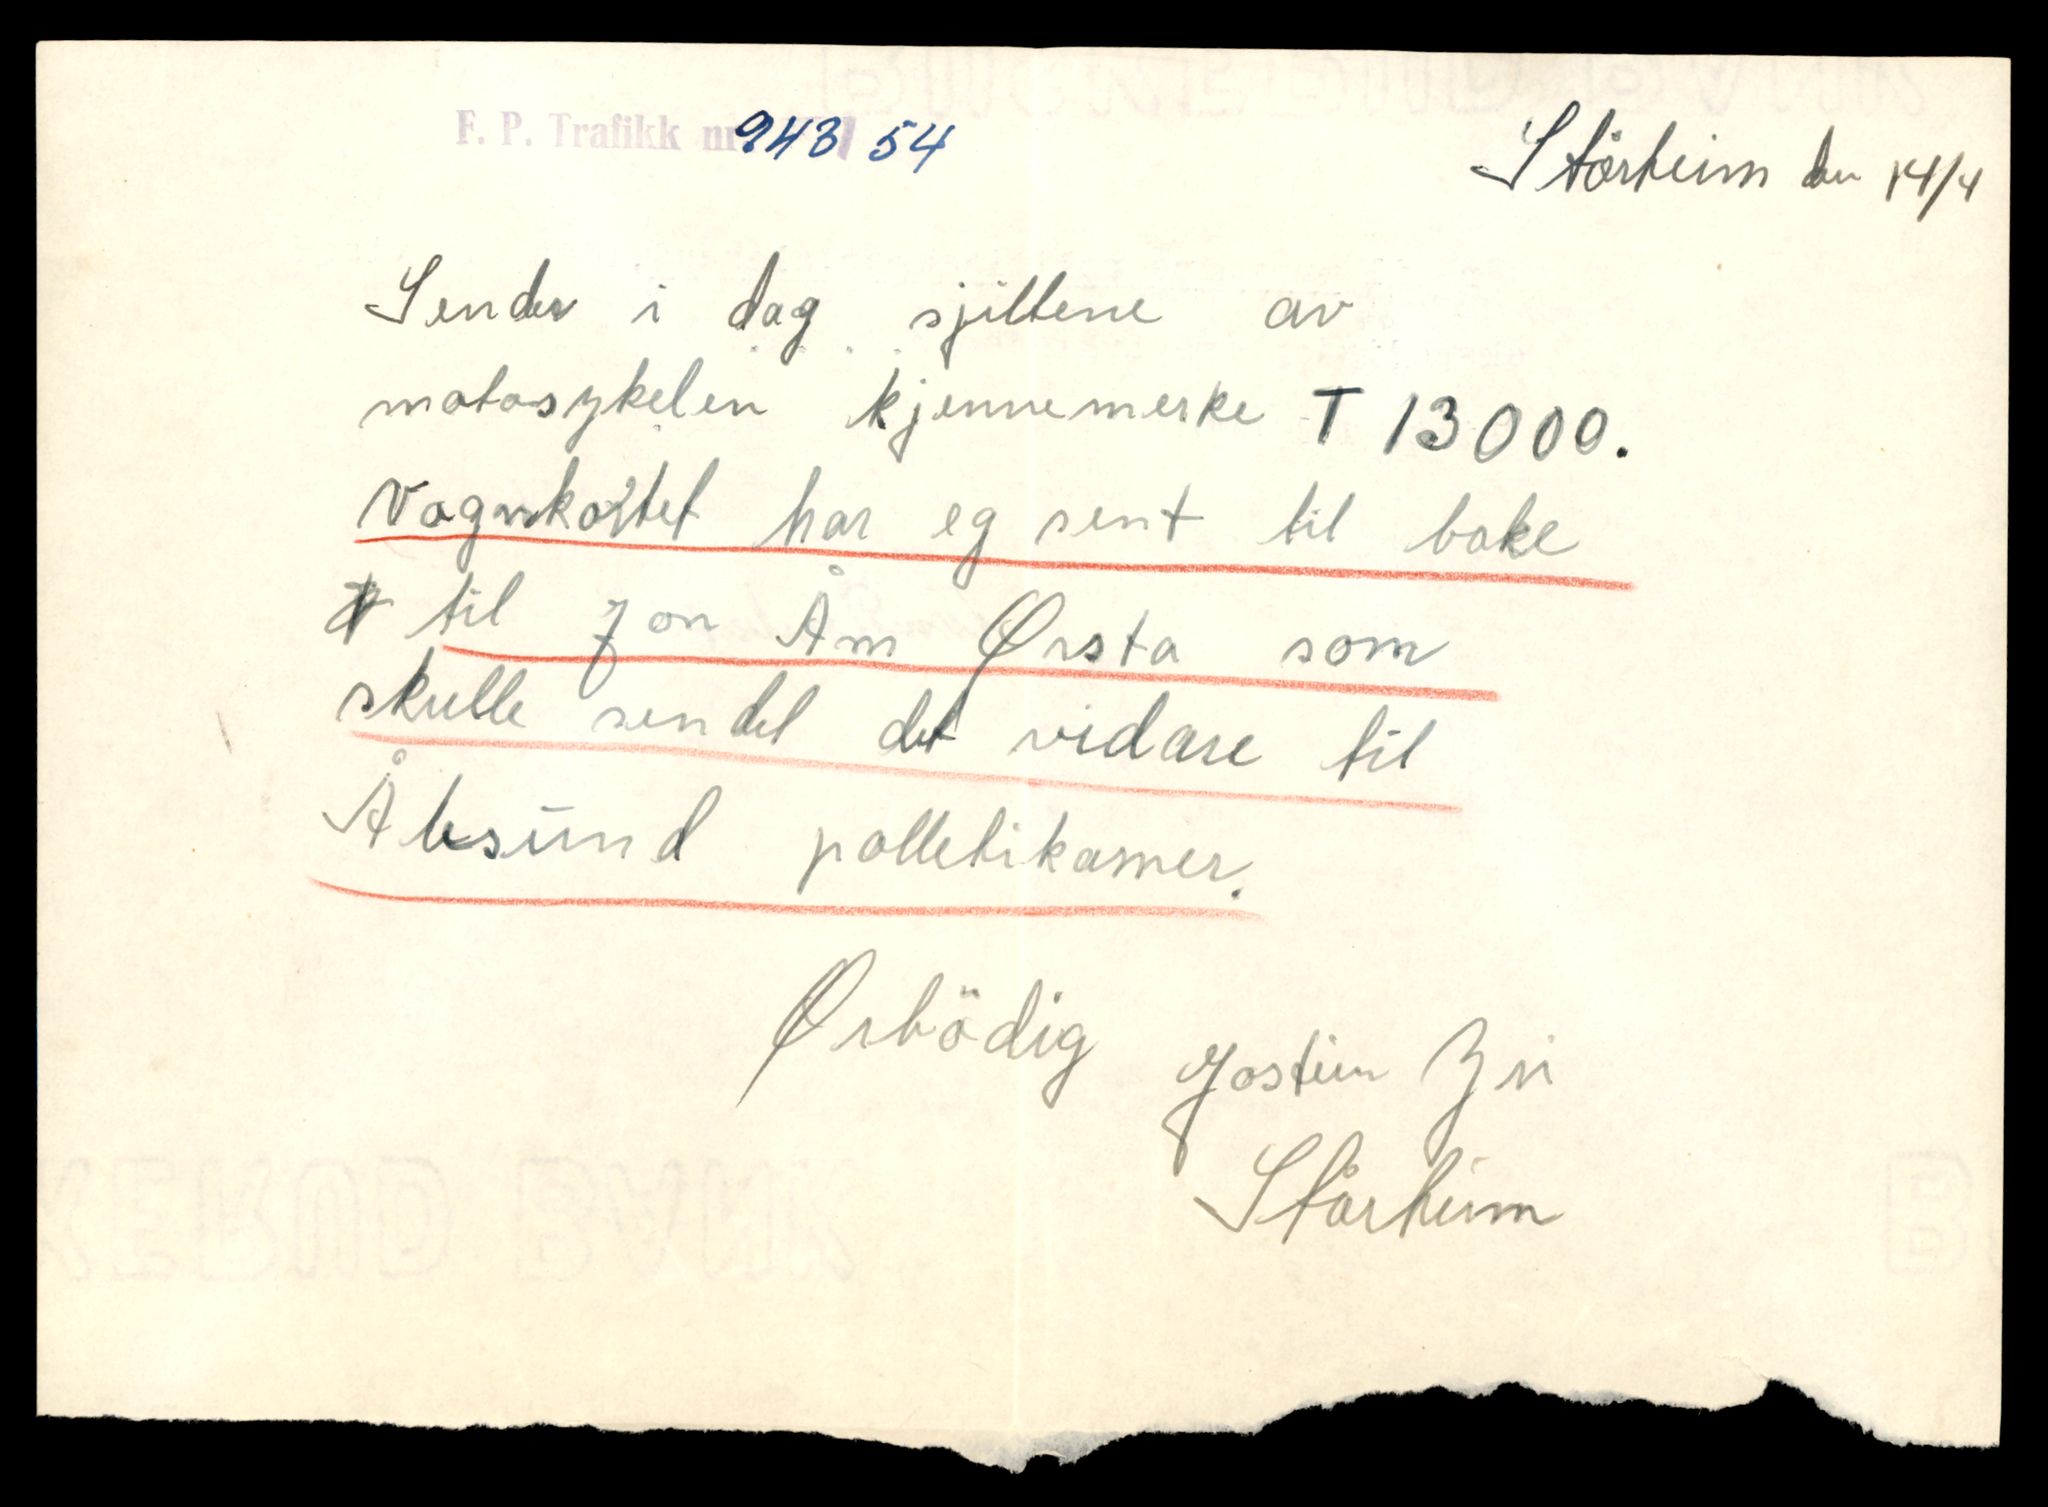 F. P. Trafikk nr 943/54
Stårheim den 14/4
Sender i dag sjiltene av
motosykelen kjennemerke T 13000.
Vognkortet har eg sent til bake
til Jon Åm Ørsta som
skulle sendel det vidare til
Ålesund polletikamer.
Ørbödig Jostein
Stårheim